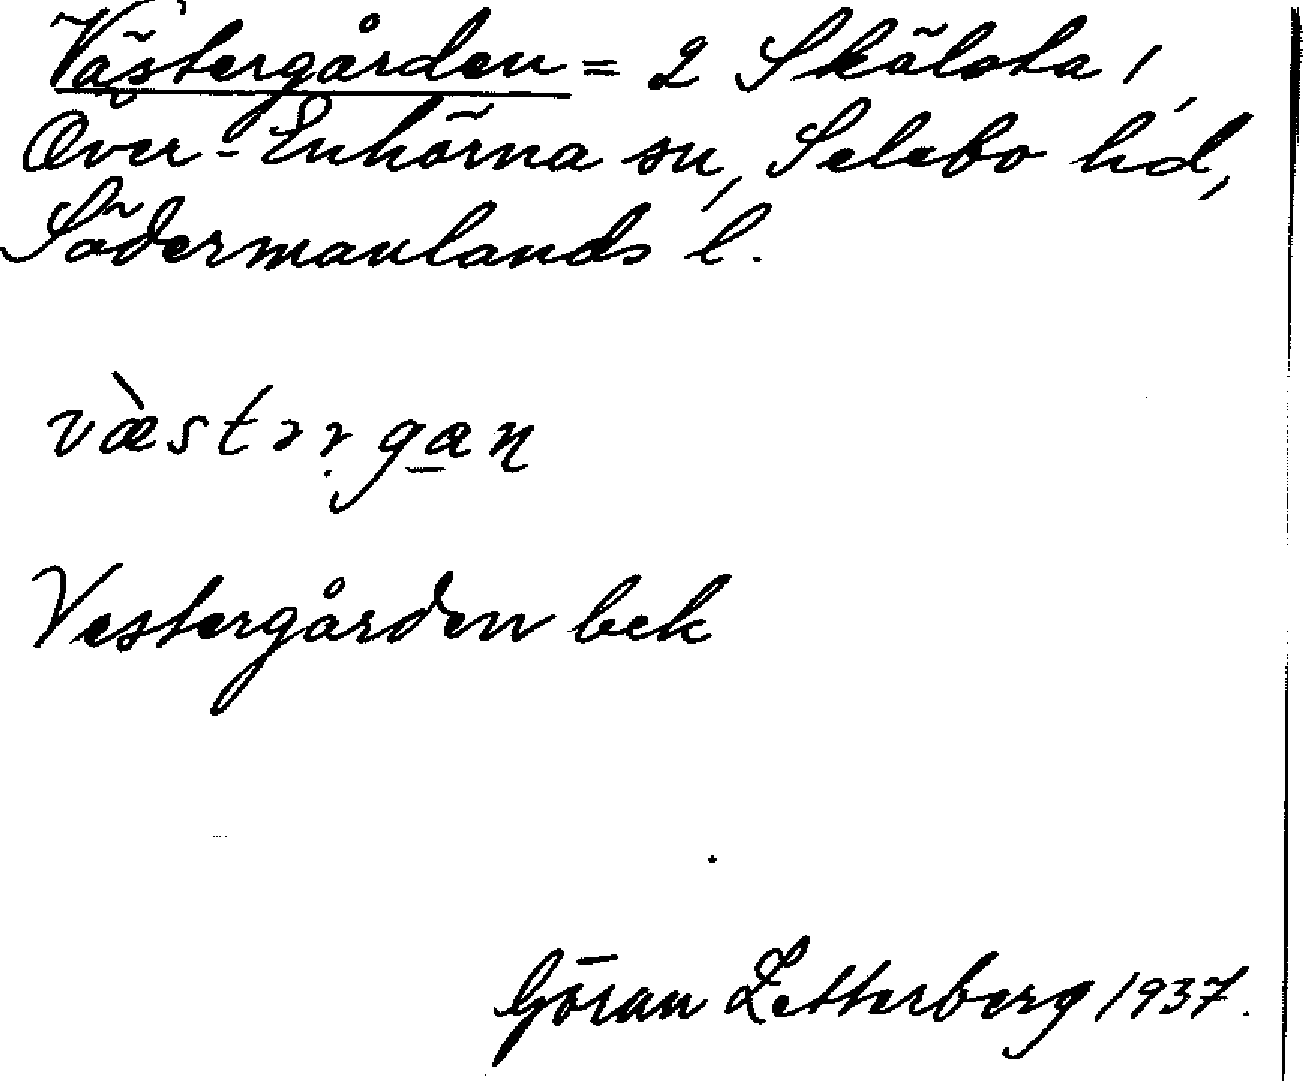 Västergården = 2 Skälsta,
Över-Enhörna sn, Selebo hd,
Södermanlands l.
Vestergården bek
Göran Zetterberg 1937.